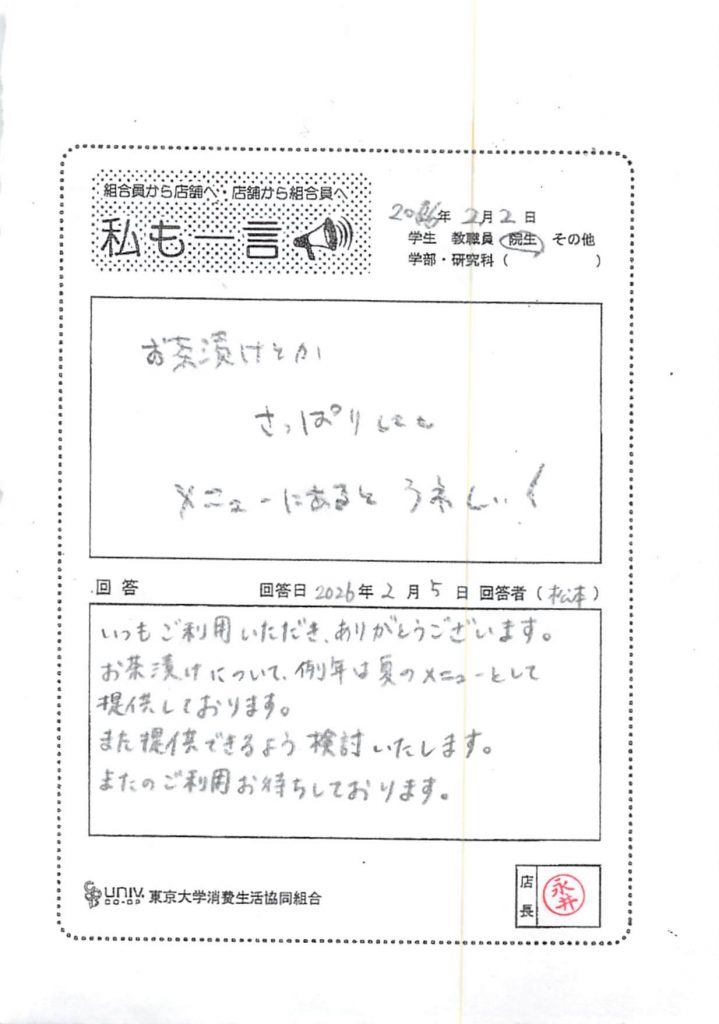 組合員から店舗へ・店舗から組合員へ
私も一言
2026年 2月 2日
学生 教職員 院生 その他
学部・研究科( )
お茶漬けとか
さっぱりしても
メニューにあるとうれしい
回答 回答日 2026年 2月 5日 回答者(松本)
いつもご利用いただき、ありがとうございます。
お茶漬けについて、例年は夏のメニューとして
提供しております。
また提供できるよう検討いたします。
またのご利用お待ちしております。
UNIV. CO-OP 東京大学消費生活協同組合
店長 永井